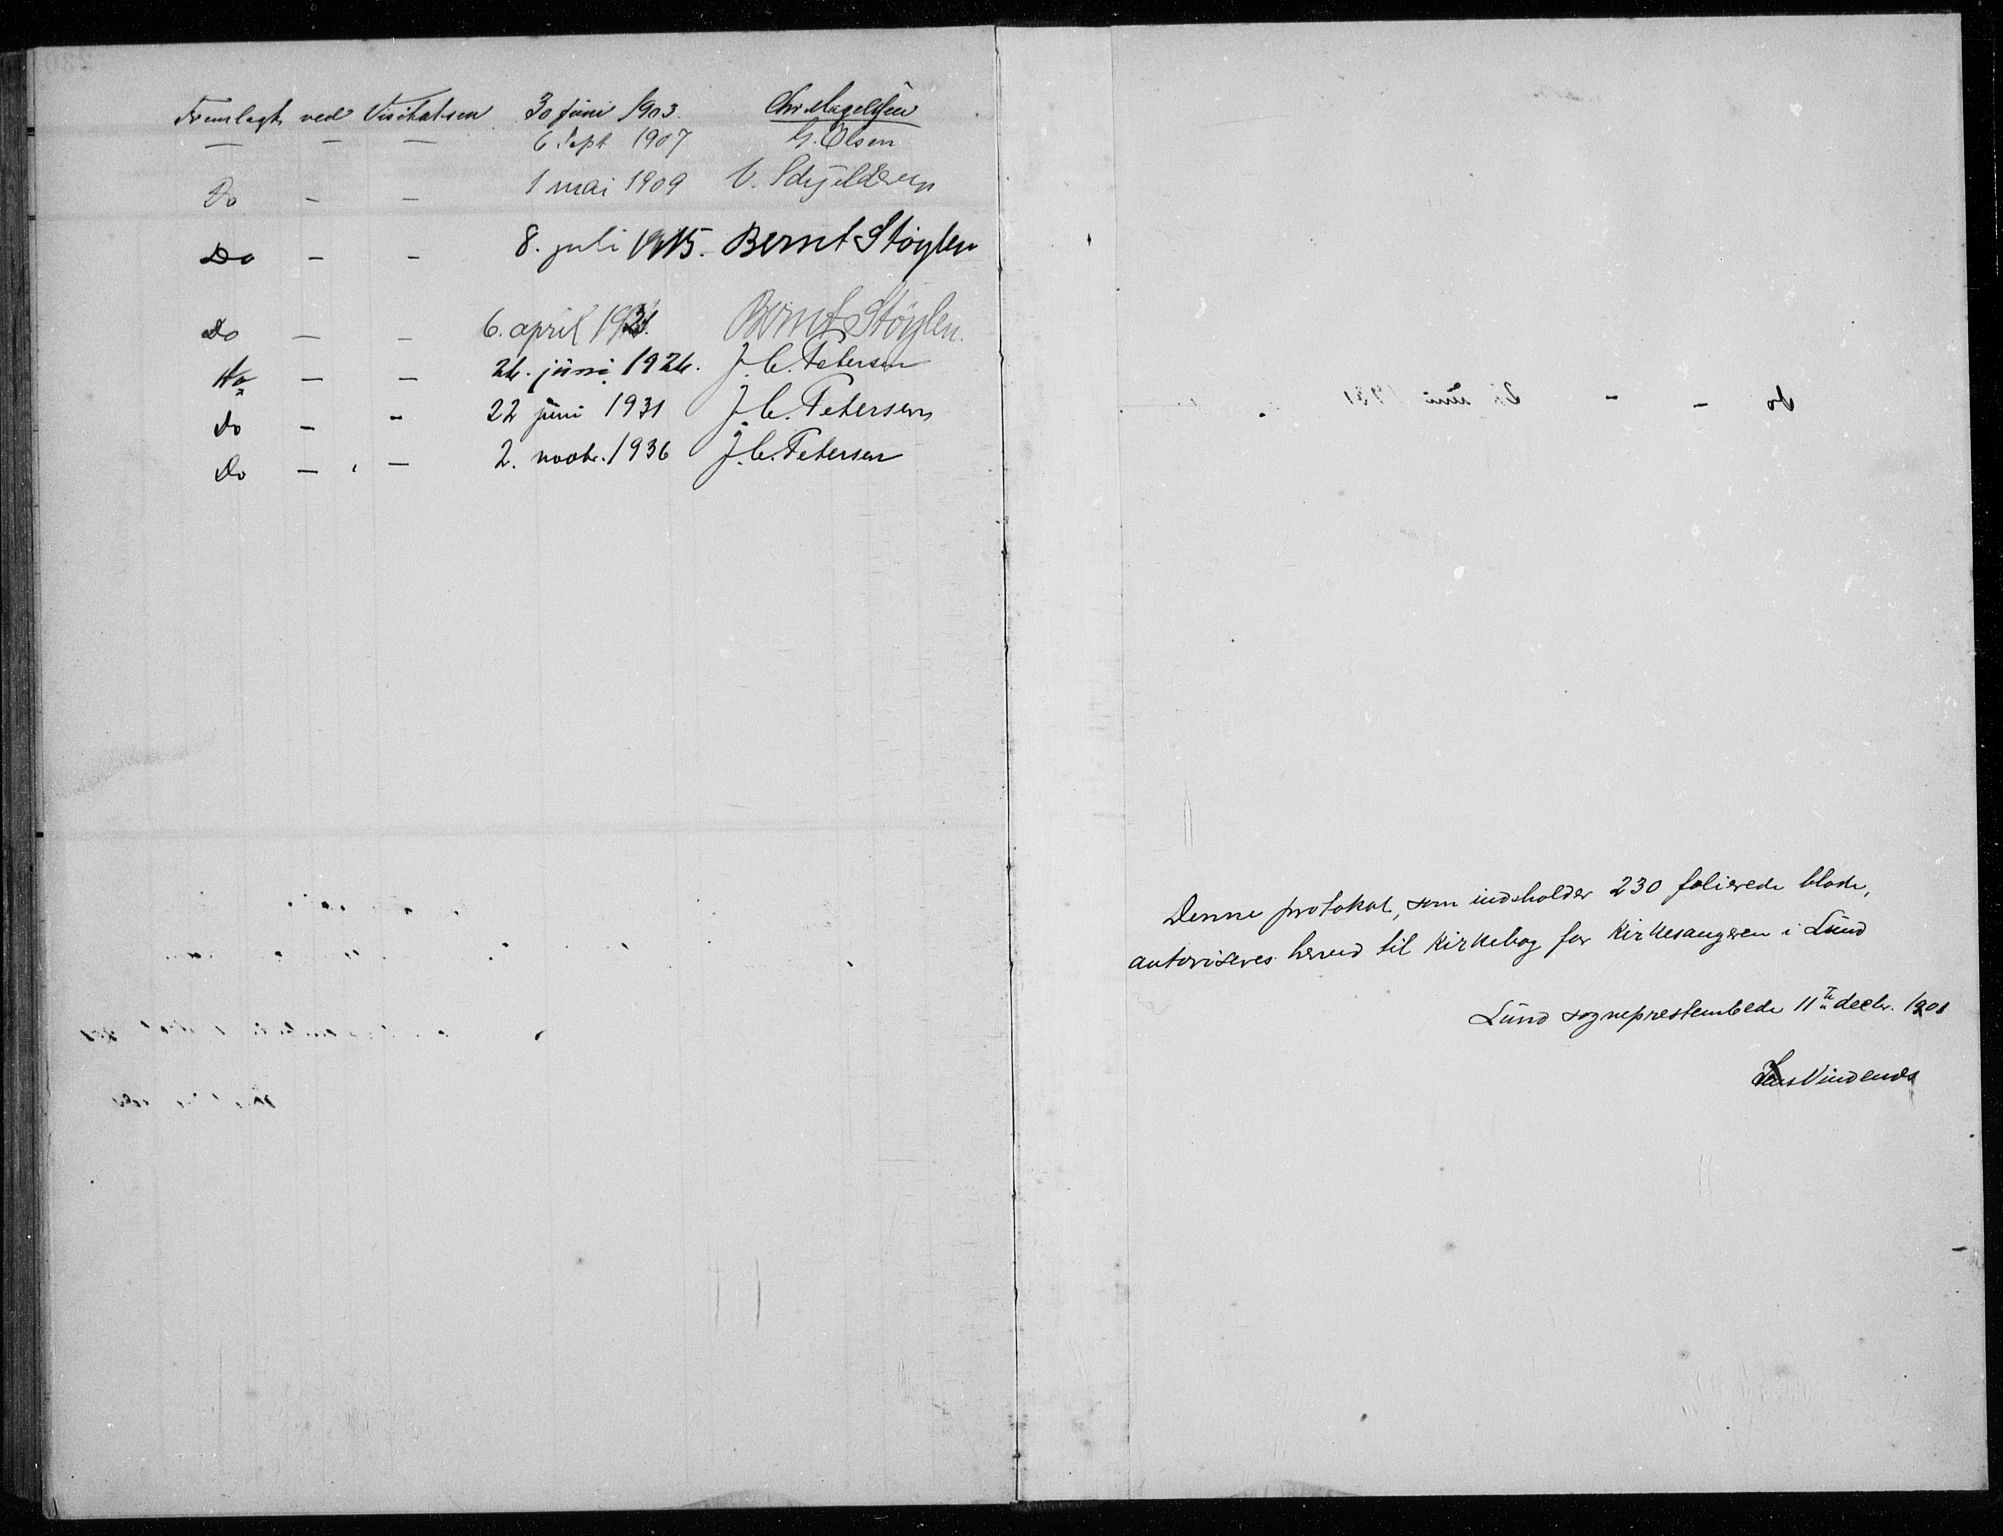 Fremlagt ved Visitatsen 30 juni 1903. Chr. Magelssen
— — — 6 Sept 1907 G. Olsen
Do — — 1 mai 1909 V. Schjelderup
Do — — 8. juli 1915. Bernt Støylen
Do — — 6. april 1921. Bernt Støylen.
Do — — 26. juni 1926. J. C. Petersen
Do — — 22 juni 1931 J. C. Petersen
Do — — 2. novbr. 1936 J. C. Petersen
Denne protokol, som indeholder 230 folierede blade,
autoriseres herved til Kirkebog for Kirkesangeren i Lund
Lund sogneprestembede 11te decbr. 1901